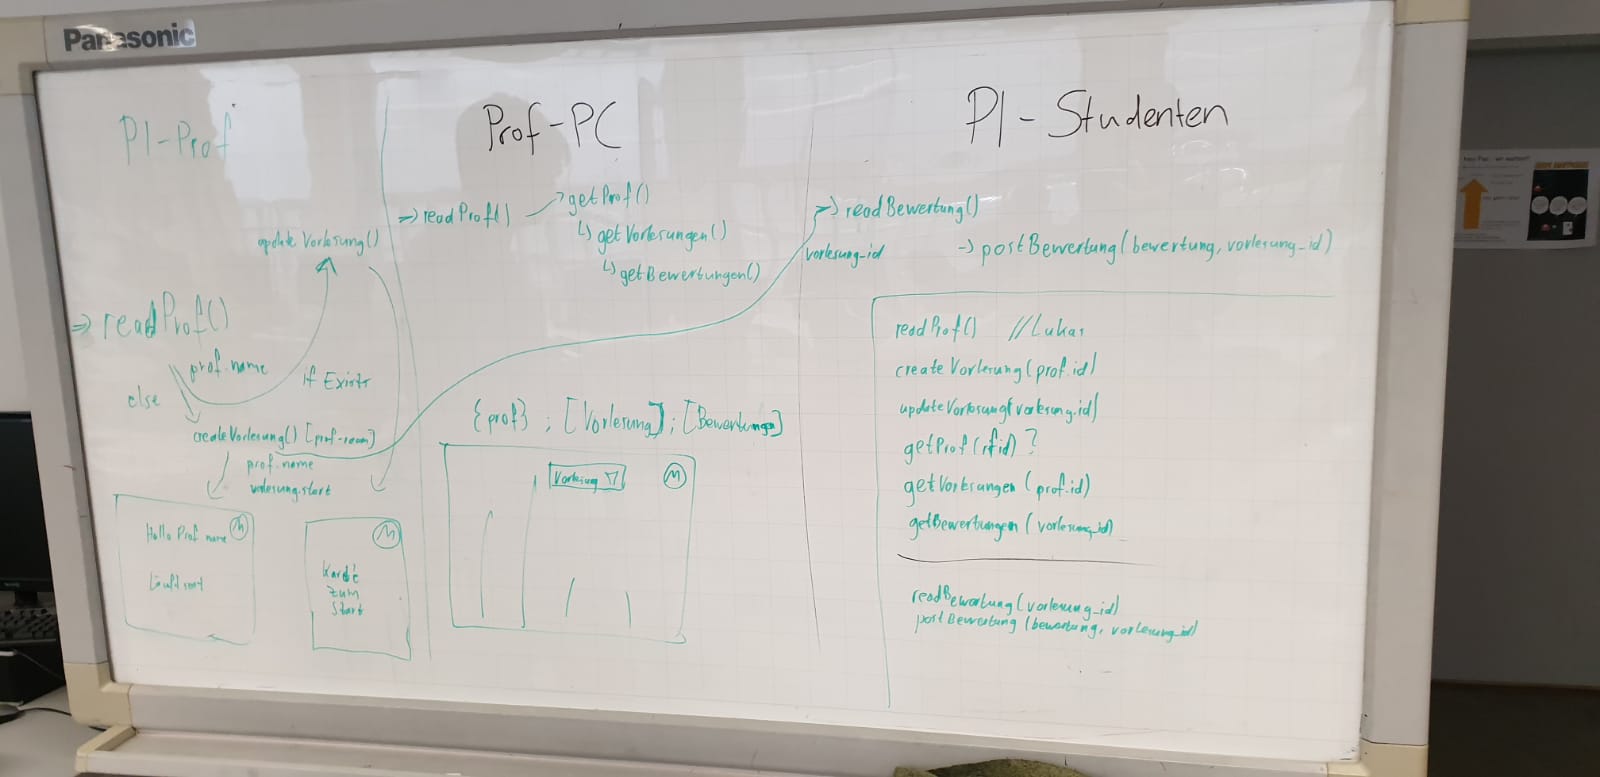 Panasonic
PI-Prof
update Vorlesung()
=> readProf()
prof.name
if Exists
else
createVorlesung() [prof-room]
prof.name
vorlesung.start
Hallo Prof name
M
Läuft seit
M
Karte
zum
Start
Prof-PC
=> readProf()
getProf()
getVorlesungen()
getBewertungen()
{prof} ; [Vorlesung]; [Bewertungen]
Vorlesung
M
PI-Studenten
=> readBewertung()
vorlesung_id
-> postBewertung(bewertung, vorlesung_id)
readProf() //Lukas
createVorlesung(prof.id)
updateVorlesung(vorlesung.id)
getProf(rfid) ?
getVorlesungen (prof.id)
getBewertungen (vorlesung_id)
readBewertung(vorlesung_id)
postBewertung (bewertung, vorlesung_id)